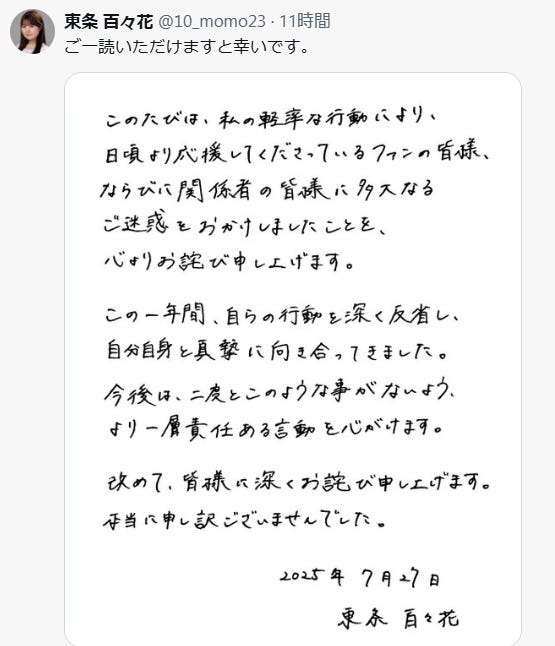 東条 百々花 @10_momo23 · 11時間
ご一読いただけますと幸いです。
このたびは、私の軽率な行動により、
日頃より応援してくださっているファンの皆様、
ならびに関係者の皆様に多大なる
ご迷惑をおかけしましたことを、
心よりお詫び申し上げます。
この一年間、自らの行動を深く反省し、
自分自身と真摯に向き合ってきました。
今後は、二度とこのような事がないよう、
より一層責任ある言動を心がけます。
改めて、皆様に深くお詫び申し上げます。
本当に申し訳ございませんでした。
2025年 7月27日
東条 百々花